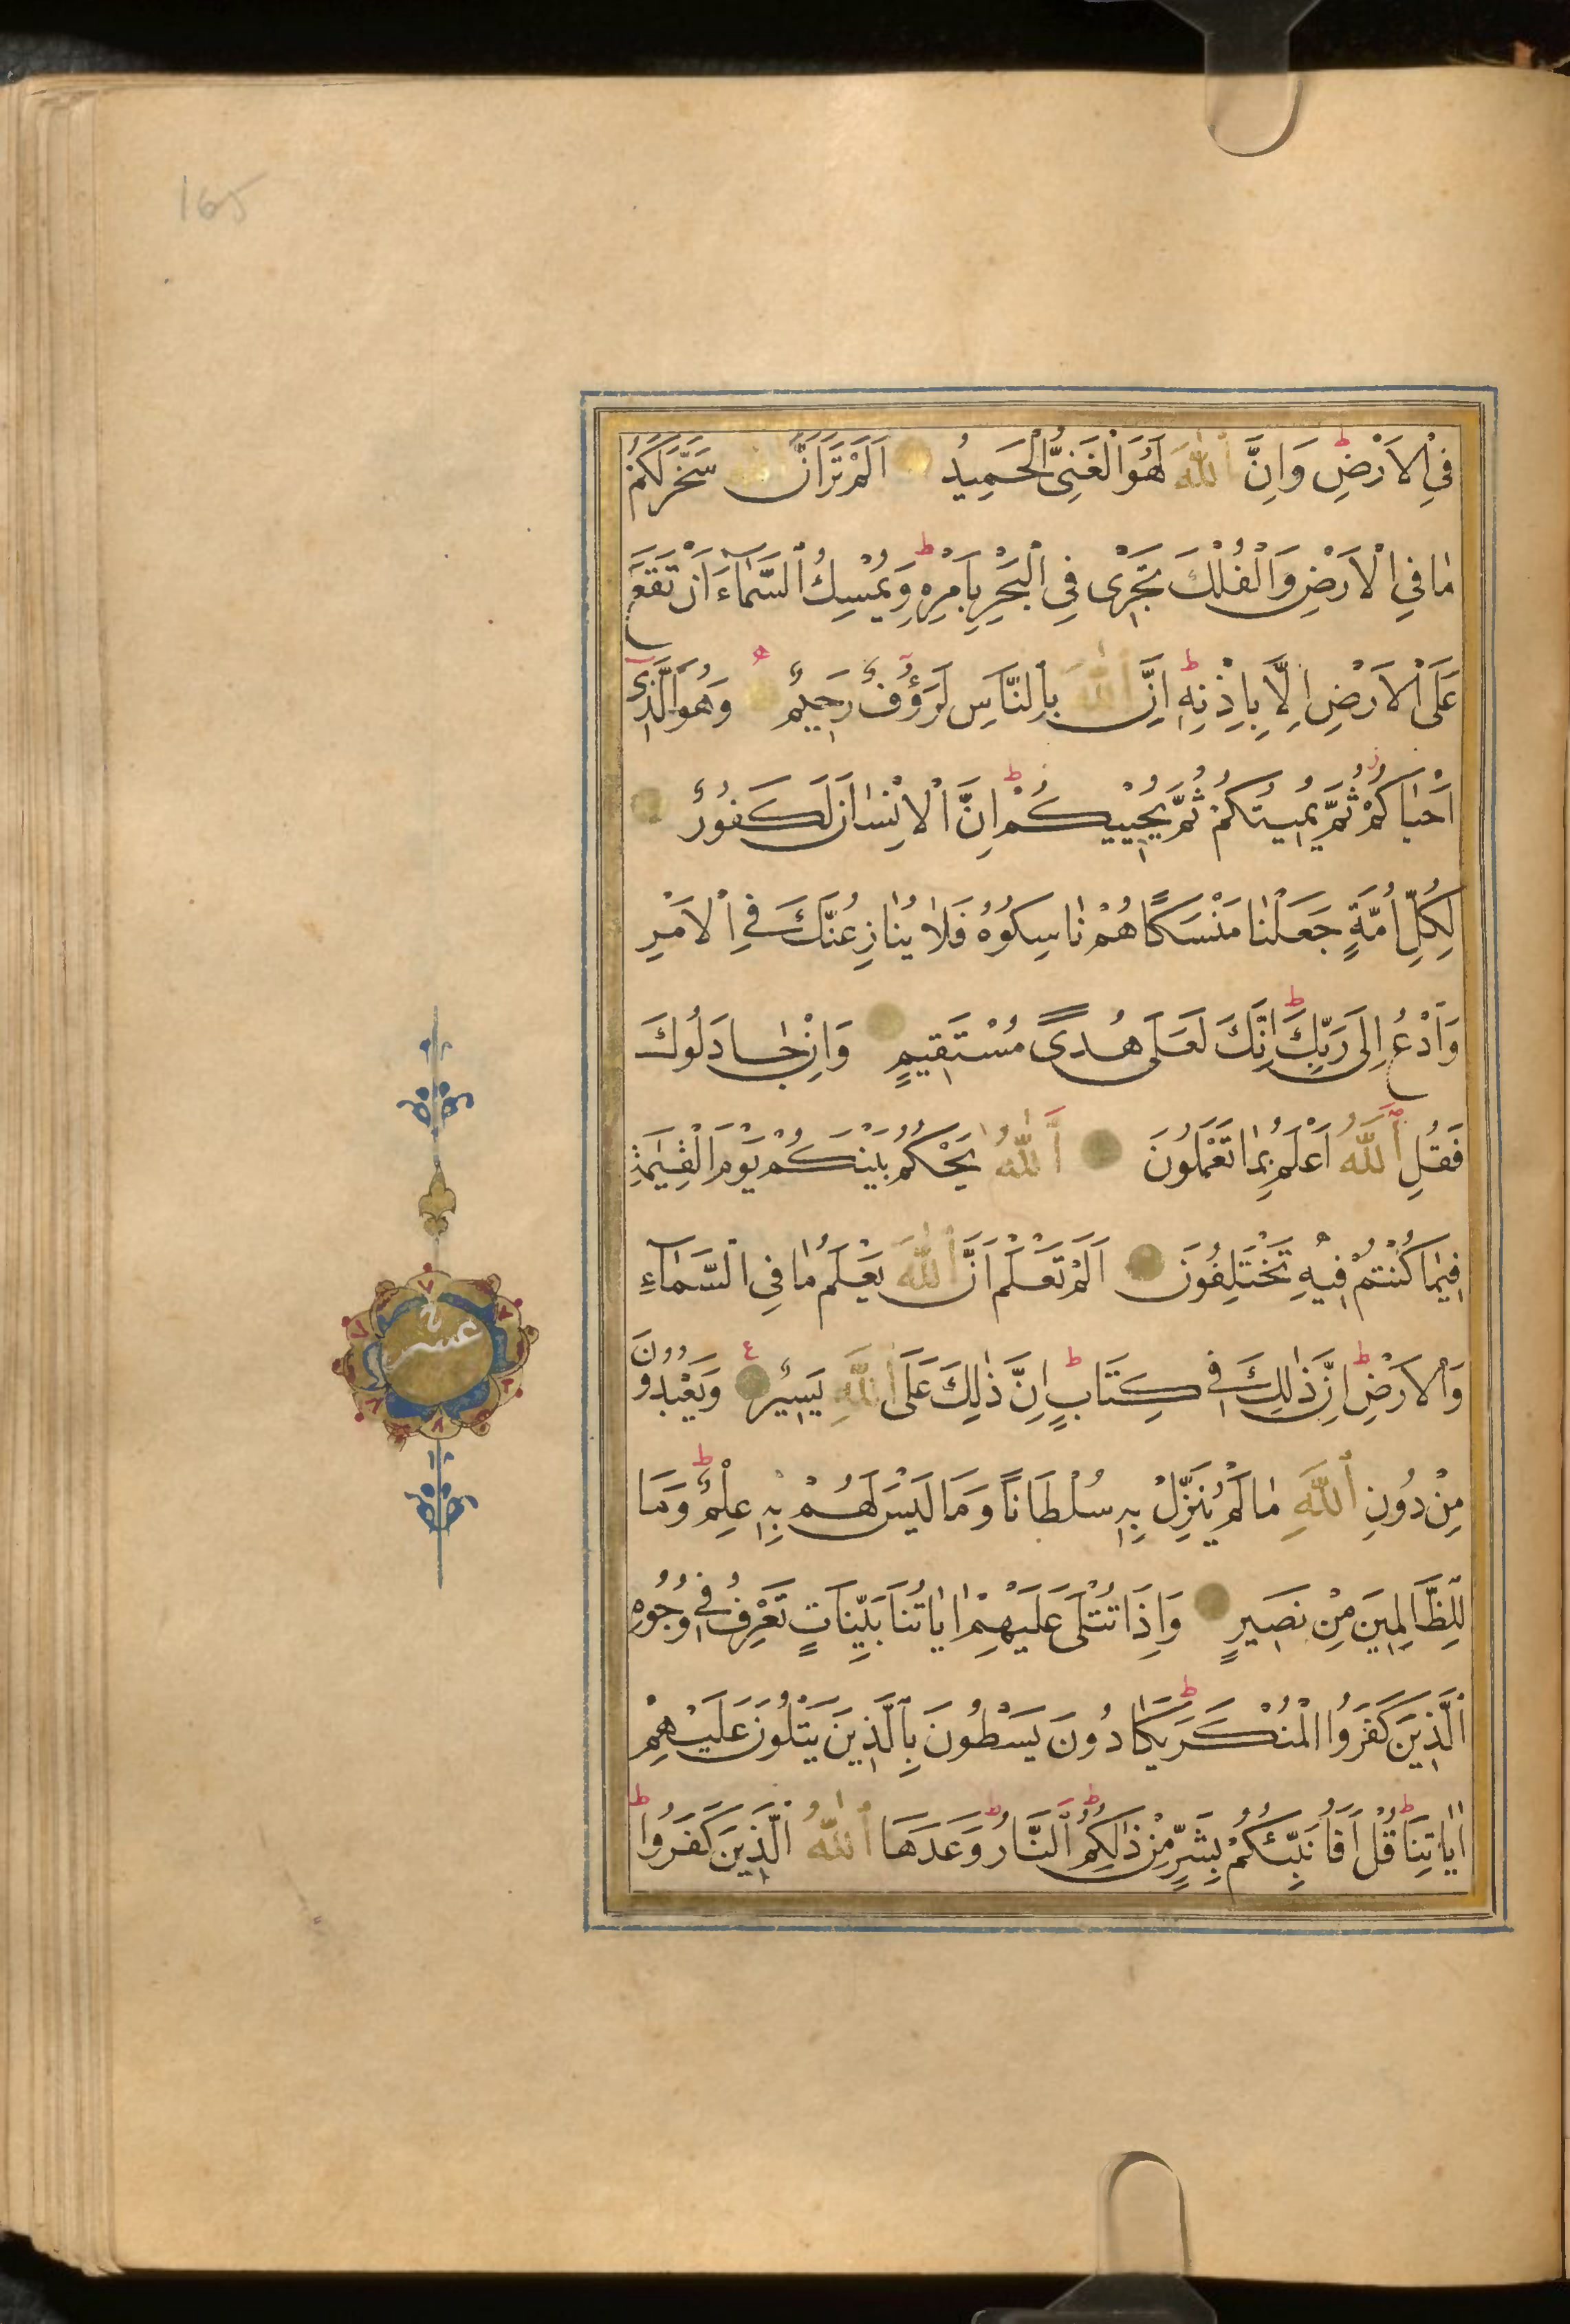 165
فِي الْاَرْضِ ط وَاِنَّ اللّٰهَ لَهُوَ الْغَنِىُّ الْحَمِيدُ اَلَمْ تَرَ اَنَّ اللّٰهَ سَخَّرَ لَكُمْ
مٰا فِي الْاَرْضِ وَالْفُلْكَ تَجْرٰى فِي الْبَحْرِ بِاَمْرِهِ ط وَيُمْسِكُ السَّمٰآءَ اَنْ تَقَعَ
عَلَى الْاَرْضِ اِلَّا بِاِذْنِهِ ط اِنَّ اللّٰهَ بِالنَّاسِ لَرَؤُفٌ رَحِيمٌ وَهُوَ الَّذِىٓ
اَحْيٰاكُمْ ز ثُمَّ يُمِيتُكُمْ ثُمَّ يُحْيِيكُمْ ط اِنَّ الْاِنْسٰانَ لَكَفُورٌ
لِكُلِّ اُمَّةٍ جَعَلْنٰا مَنْسَكًا هُمْ نٰاسِكُوهُ فَلٰا يُنٰازِعُنَّكَ فِي الْاَمْرِ
وَادْعُ اِلَى رَبِّكَ ط اِنَّكَ لَعَلَى هُدًى مُسْتَقِيمٍ وَاِنْ جٰادَلُوكَ
فَقُلِ اللّٰهُ اَعْلَمُ بِمٰا تَعْمَلُونَ اَللّٰهُ يَحْكُمُ بَيْنَكُمْ يَوْمَ الْقِيٰمَةِ
فِيمٰا كُنْتُمْ فِيهِ تَخْتَلِفُونَ اَلَمْ تَعْلَمْ اَنَّ اللّٰهَ يَعْلَمُ مٰا فِي السَّمٰآءِ
وَالْاَرْضِ ط اِنَّ ذٰلِكَ فِي كِتَابٍ ط اِنَّ ذٰلِكَ عَلَى اللّٰهِ يَسِيرٌ ع وَيَعْبُدُونَ
مِنْ دُونِ اللّٰهِ مٰا لَمْ يُنَزِّلْ بِهِ سُلْطَانًا وَمَا لَيْسَ لَهُمْ بِهِ عِلْمٌ ط وَمَا
لِلظَّالِمِينَ مِنْ نَصِيرٍ وَاِذَا تُتْلَى عَلَيْهِمْ اٰيٰاتُنَا بَيِّنَاتٍ تَعْرِفُ فِي وُجُوهِ
الَّذِينَ كَفَرُوا الْمُنْكَرَ ط يَكٰادُونَ يَسْطُونَ بِالَّذِينَ يَتْلُونَ عَلَيْهِمْ
اٰيٰاتِنَا ط قُلْ اَفَاُنَبِّئُكُمْ بِشَرٍّ مِنْ ذٰلِكُمُ ط اَلنَّارُ ط وَعَدَهَا اللّٰهُ الَّذِينَ كَفَرُوا ط
عشر